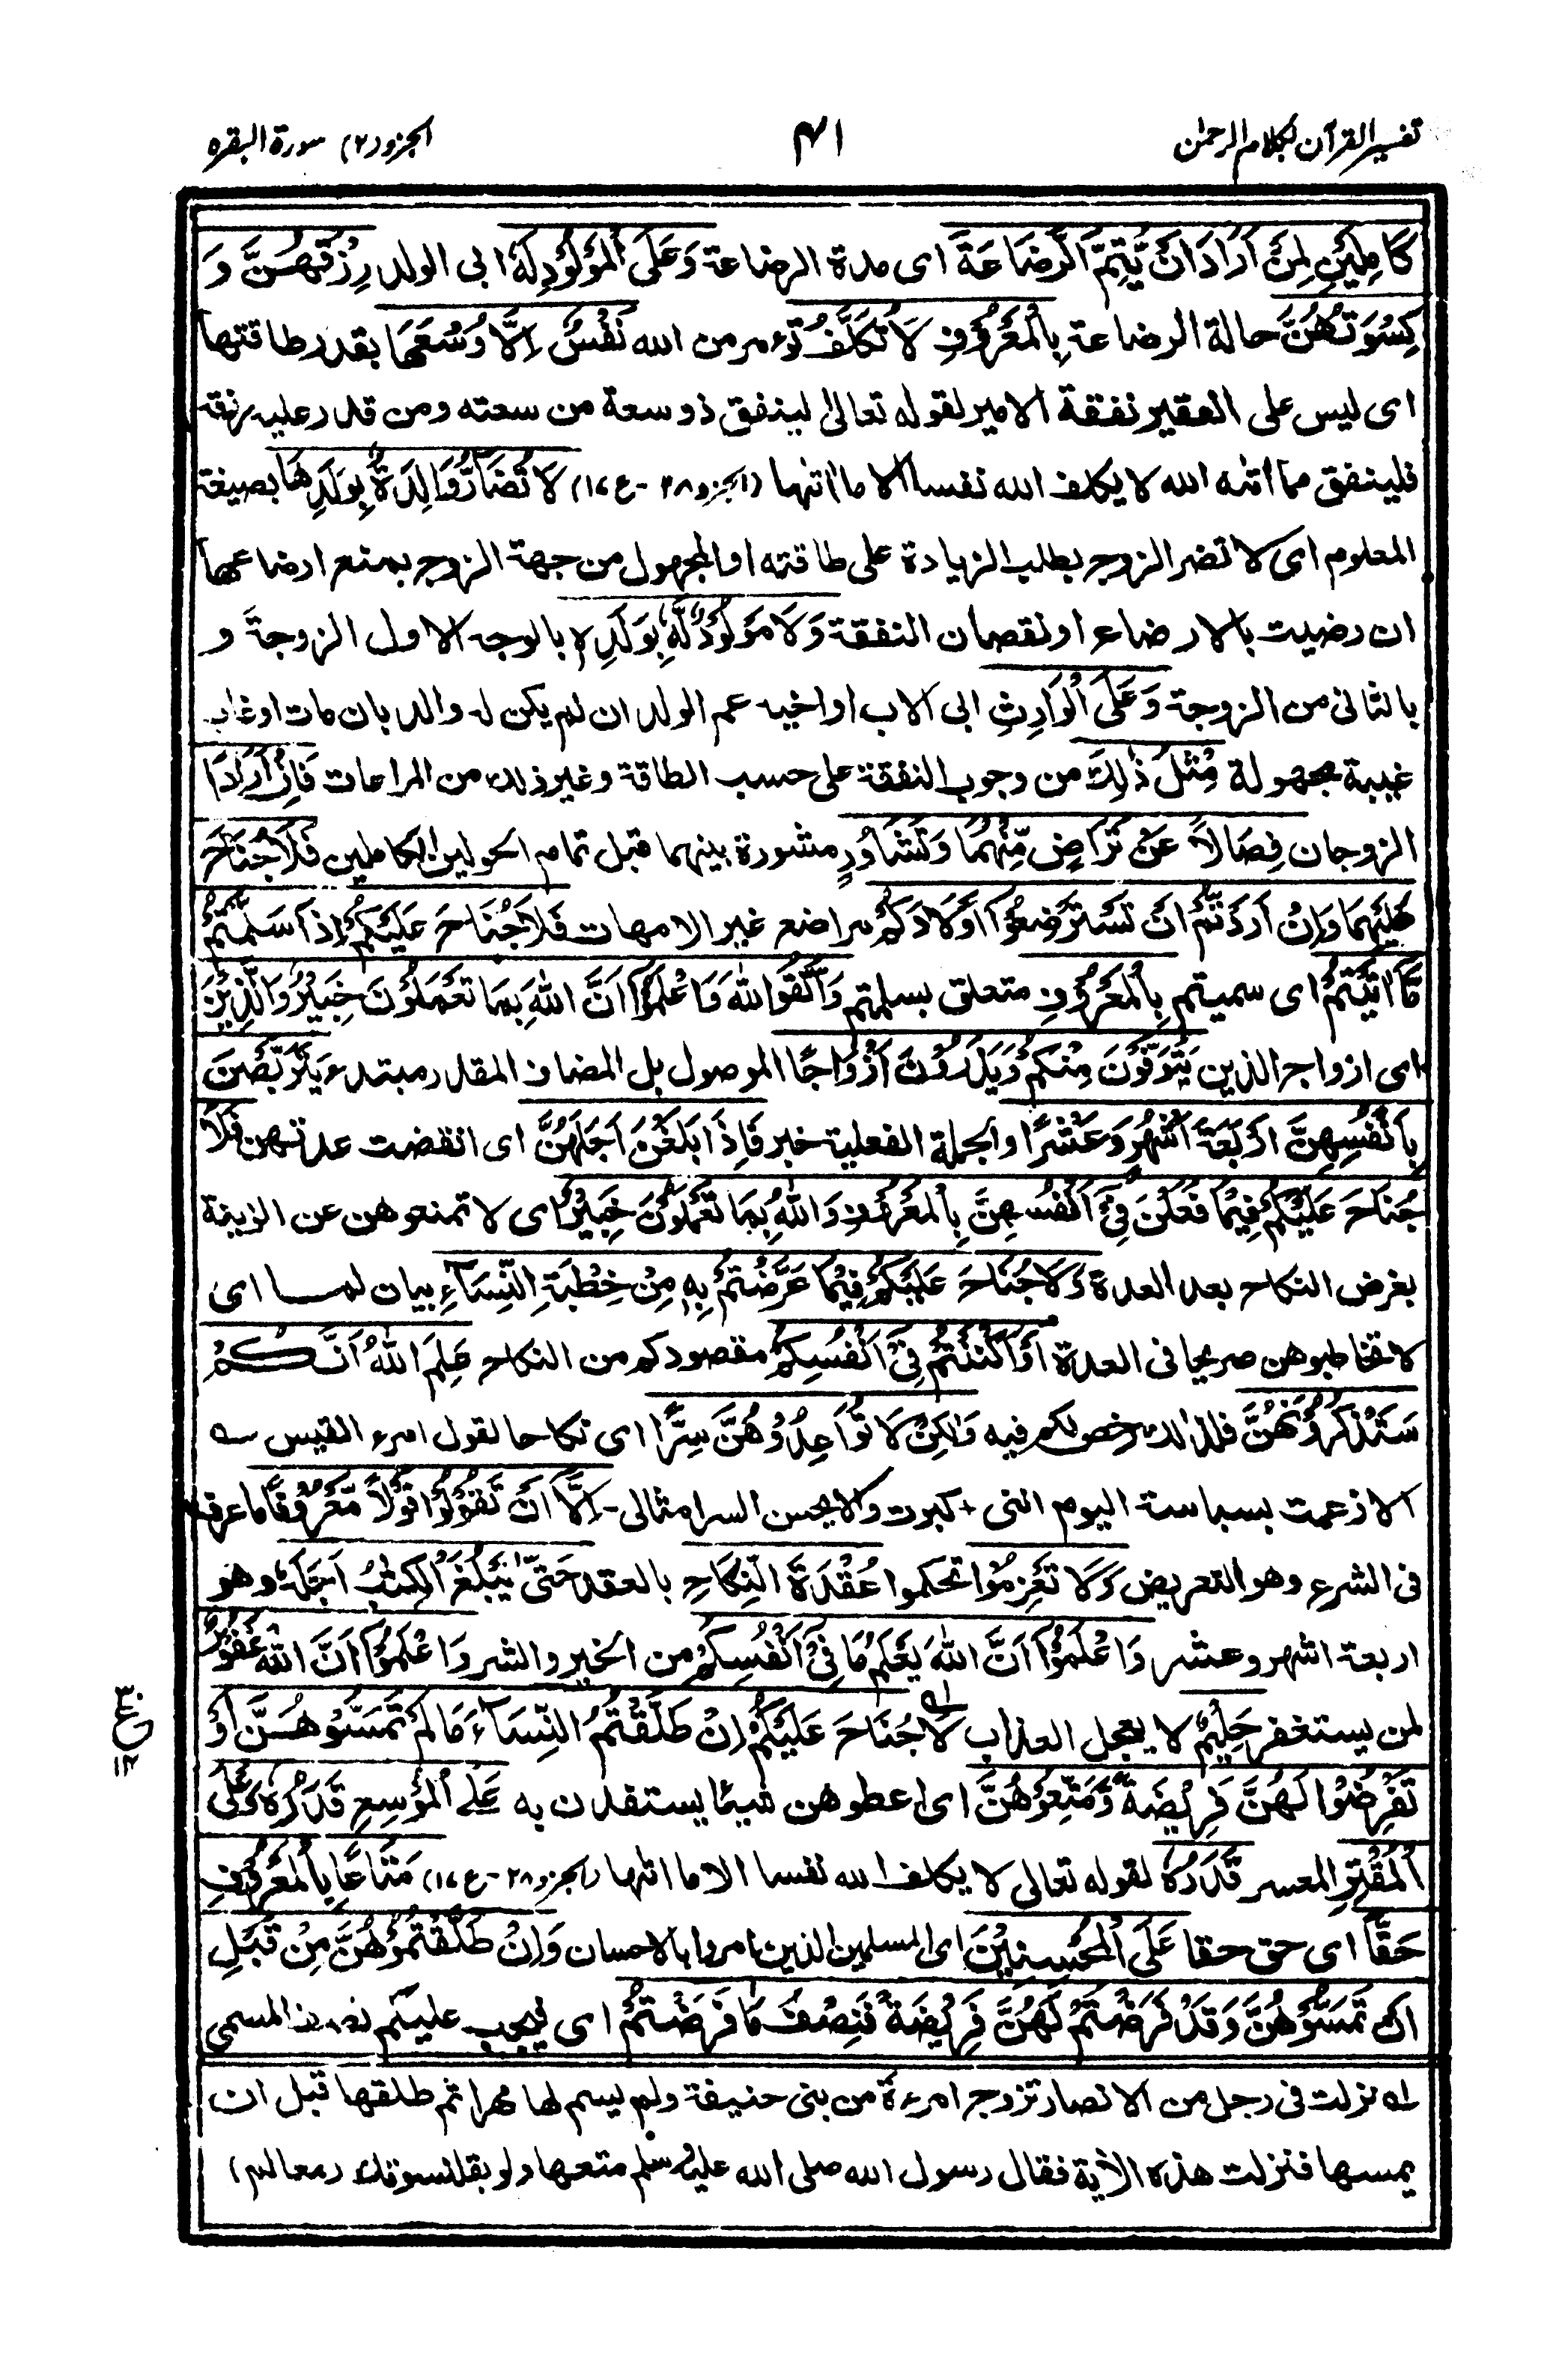 تفسير القرآن بكلام الرحمن
٤١
الجزء (٢) سورة البقره
كَامِلَيْنِ لِمَنْ اَرَادَ اَنْ يُّتِمَّ الرَّضَاعَةَ اى مدة الرضاعة وَعَلَى الْمَوْلُوْدِ لَهٗ ابى الولد رِزْقُهُنَّ وَ
كِسْوَتُهُنَّ حالة الرضاعة بِالْمَعْرُوْفِ لَا تُكَلَّفُ تؤمر من الله نَفْسٌ اِلَّا وُسْعَهَا بقدر طاقتها
اى ليس على الفقير نفقة الامير لقوله تعالىٰ لينفق ذو سعة من سعته ومن قدر عليه رزقه
فلينفق مما اتٰه الله لا يكلف الله نفسا الا ما اٰتٰها (الجزو ٢٨ - ع ١٧) لَا تُضَآرَّ وَالِدَةٌۢ بِوَلَدِهَا بصيغة
المعلوم اى لا تضر الزوج بطلب الزيادة على طاقته او المجهول من جهة الزوج بمنع ارضاعها
ان رضيت بالارضاع او نقصان النفقة وَلَا مَوْلُوْدٌ لَّهٗ بِوَلَدِهٖ بالوجه الاول الزوجة و
بالثانى من الزوجة وَعَلَى الْوَارِثِ ابى الاب او اخيه عم الولد ان لم يكن له والد بان مات او غاب
غيبة مجهولة مِثْلُ ذٰلِكَ من وجوب النفقة على حسب الطاقة وغير ذلك من المراعات فَاِنْ اَرَادَا
الزوجان فِصَالًا عَنْ تَرَاضٍ مِّنْهُمَا وَتَشَاوُرٍ مشورة بينهما قبل تمام الحولين الكاملين فَلَا جُنَاحَ
عَلَيْهِمَا وَاِنْ اَرَدْتُّمْ اَنْ تَسْتَرْضِعُوْٓا اَوْلَادَكُمْ مراضع غير الامهات فَلَا جُنَاحَ عَلَيْكُمْ اِذَا سَلَّمْتُمْ
مَّآ اٰتَيْتُمْ اى سميتم بِالْمَعْرُوْفِ متعلق بسلمتم وَاتَّقُوا اللّٰهَ وَاعْلَمُوْٓا اَنَّ اللّٰهَ بِمَا تَعْمَلُوْنَ خَبِيْرٌ وَالَّذِيْنَ
اى ازواج الذين يُتَوَفَّوْنَ مِنْكُمْ وَيَذَرُوْنَ اَزْوَاجًا الموصول بل المضاف المقدر مبتدء يَتَرَبَّصْنَ
بِاَنْفُسِهِنَّ اَرْبَعَةَ اَشْهُرٍ وَعَشْرًا والجملة الفعلية خبر فَاِذَا بَلَغْنَ اَجَلَهُنَّ اى انقضت عدتهن فَلَا
جُنَاحَ عَلَيْكُمْ فِيْمَا فَعَلْنَ فِيْٓ اَنْفُسِهِنَّ بِالْمَعْرُوْفِ وَاللّٰهُ بِمَا تَعْمَلُوْنَ خَبِيْرٌ اى لا تمنعوهن عن الزينة
بغرض النكاح بعد العدة وَلَا جُنَاحَ عَلَيْكُمْ فِيْمَا عَرَّضْتُمْ بِهٖ مِنْ خِطْبَةِ النِّسَآءِ بيان لما اى
لا تخاطبوهن صريحا فى العدة اَوْ اَكْنَنْتُمْ فِيْٓ اَنْفُسِكُمْ مقصودكم من النكاح عَلِمَ اللّٰهُ اَنَّكُمْ
سَتَذْكُرُوْنَهُنَّ فلذالك رخص لكم فيه وَلٰكِنْ لَّا تُوَاعِدُوْهُنَّ سِرًّا اى نكاحا لقول امرء القيس ؎
الا زعمت بسباسة اليوم اننى + كبرت والا يحسن السر امثالى - اِلَّآ اَنْ تَقُوْلُوْا قَوْلًا مَّعْرُوْفًا ما عرف
فى الشرع وهو التعريض وَلَا تَعْزِمُوْا تحكموا عُقْدَةَ النِّكَاحِ بالعقد حَتّٰى يَبْلُغَ الْكِتٰبُ اَجَلَهٗ وهو
اربعة اشهر وعشر وَاعْلَمُوْٓا اَنَّ اللّٰهَ يَعْلَمُ مَا فِيْٓ اَنْفُسِكُمْ من الخير والشر وَاعْلَمُوْٓا اَنَّ اللّٰهَ غَفُوْرٌ
لمن يستغفر حَلِيْمٌ لا يعجل العذاب لَا جُنَاحَ عَلَيْكُمْ اِنْ طَلَّقْتُمُ النِّسَآءَ مَا لَمْ تَمَسُّوْهُنَّ اَوْ
تَفْرِضُوْا لَهُنَّ فَرِيْضَةً وَّمَتِّعُوْهُنَّ اى اعطوهن شيئا يستفدن به عَلَى الْمُوْسِعِ قَدَرُهٗ وَعَلَى
الْمُقْتِرِ المعسر قَدَرُهٗ لقوله تعالى لا يكلف الله نفسا الا ما اتٰها (الجزو ٢٨ - ع ١٧) مَتَاعًا بِالْمَعْرُوْفِ
حَقًّا اى حق حقا عَلَى الْمُحْسِنِيْنَ اى المسلمين الذين امروا بالاحسان وَاِنْ طَلَّقْتُمُوْهُنَّ مِنْ قَبْلِ
اَنْ تَمَسُّوْهُنَّ وَقَدْ فَرَضْتُمْ لَهُنَّ فَرِيْضَةً فَنِصْفُ مَا فَرَضْتُمْ اى فيجب عليكم نصف المسمى
له نزلت فى رجل من الانصار تزوج امرءة من بنى حنيفة ولم يسم لها مهرا ثم طلقها قبل ان
يمسها فنزلت هذه الاٰية فقال رسول الله صلى الله عليه وسلم متعها ولو بقلنسوتك (معالم)